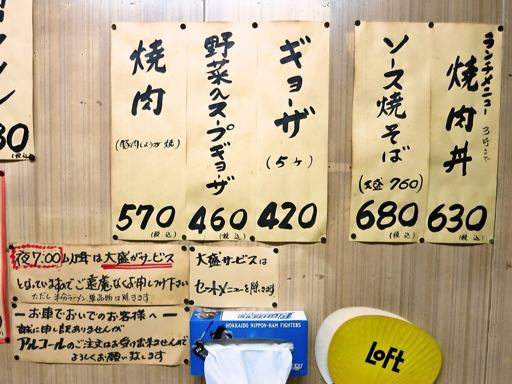 ランチメニュー
3時まで
焼肉丼
630
(税込)
ソース焼そば
(大盛 760)
680
(税込)
ギョーザ
(5ヶ)
420
(税込)
野菜入スープギョーザ
460
(税込)
焼肉
(豚肉しょうが焼)
570
(税込)
30
(税込)
夜7:00以降は大盛がサービス
となっていますのでご遠慮なくお申しつけ下さい
ただし半分ラーメン、単品物は除きます
大盛サービスは
セットメニューを除きます
ーお車でおいでのお客様へー
誠に申し訳ありませんが
アルコールのご注文はお受け出来ませんので
よろしくお願い致します
HOKKAIDO NIPPON-HAM FIGHTERS
LOFT